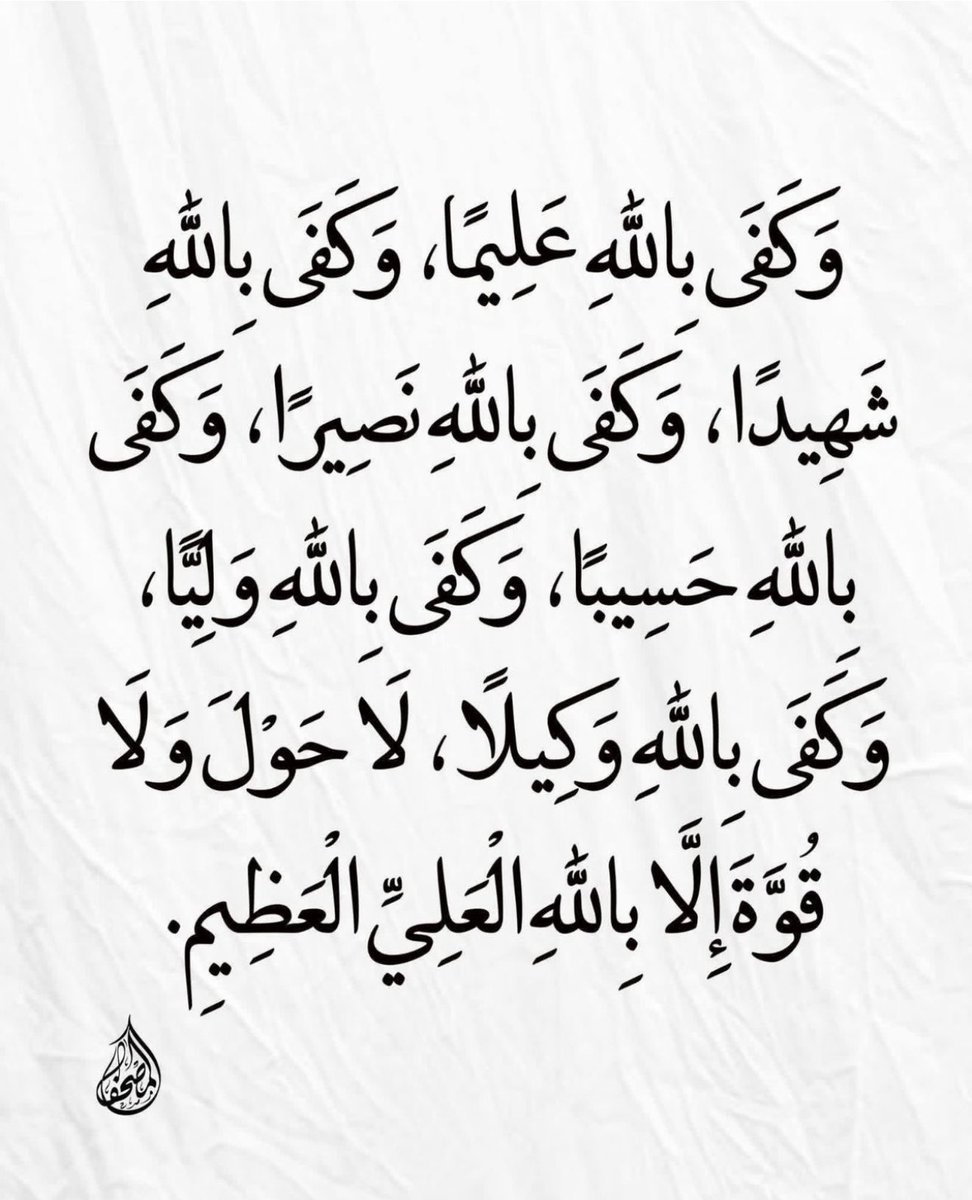 وَكَفَى بِاللَّهِ عَلِيمًا، وَكَفَى بِاللَّهِ
شَهِيدًا، وَكَفَى بِاللَّهِ نَصِيرًا، وَكَفَى
بِاللَّهِ حَسِيبًا، وَكَفَى بِاللَّهِ وَلِيًّا،
وَكَفَى بِاللَّهِ وَكِيلًا، لَا حَوْلَ وَلَا
قُوَّةَ إِلَّا بِاللَّهِ الْعَلِيِّ الْعَظِيمِ.